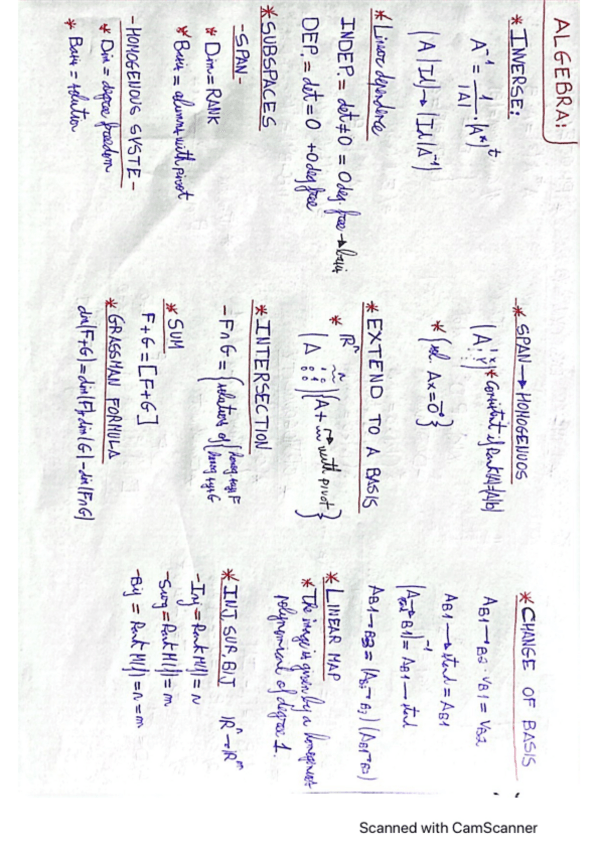 ALGEBRA:
* INVERSE:
A⁻¹ = 1/|A| · (A*)ᵗ
(A|Id) → (Id|A⁻¹)
* Linear dependence
INDEP. = det ≠ 0 = 0 deg. free → basis
DEP. = det = 0 + 0 deg free
* SUBSPACES
- SPAN -
* Dim = RANK
* Basis = columns with pivot
- HOMOGENOUS SYSTE -
* Dim = degree freedom
* Basis = solution
* SPAN → HOMOGENUOS
* Consistent if Rank(A) = (A|b)
* { Ax = 0 }
* EXTEND TO A BASIS
* Rⁿ
with pivot }
* INTERSECTION
- F∩G = { solutions of { homog. sys F
homog sys G
* SUM
F + G = [F + G]
* GRASSMAN FORMULA
dim(F+G) = dim(F) + dim(G) - dim(F∩G)
* CHANGE OF BASIS
AB1 → B2 · VB1 = VB2
AB1 → stand = AB1
AB1 → B2 =
* LINEAR MAP
* The image is given by a homogeneous
polynomial of degree 1.
* INJ SUR BIJ Rⁿ → Rᵐ
- Inj = Rank M(f) = n
- Surj = Rank M(f) = m
- Bij = Rank M(f) = n = m
Scanned with CamScanner